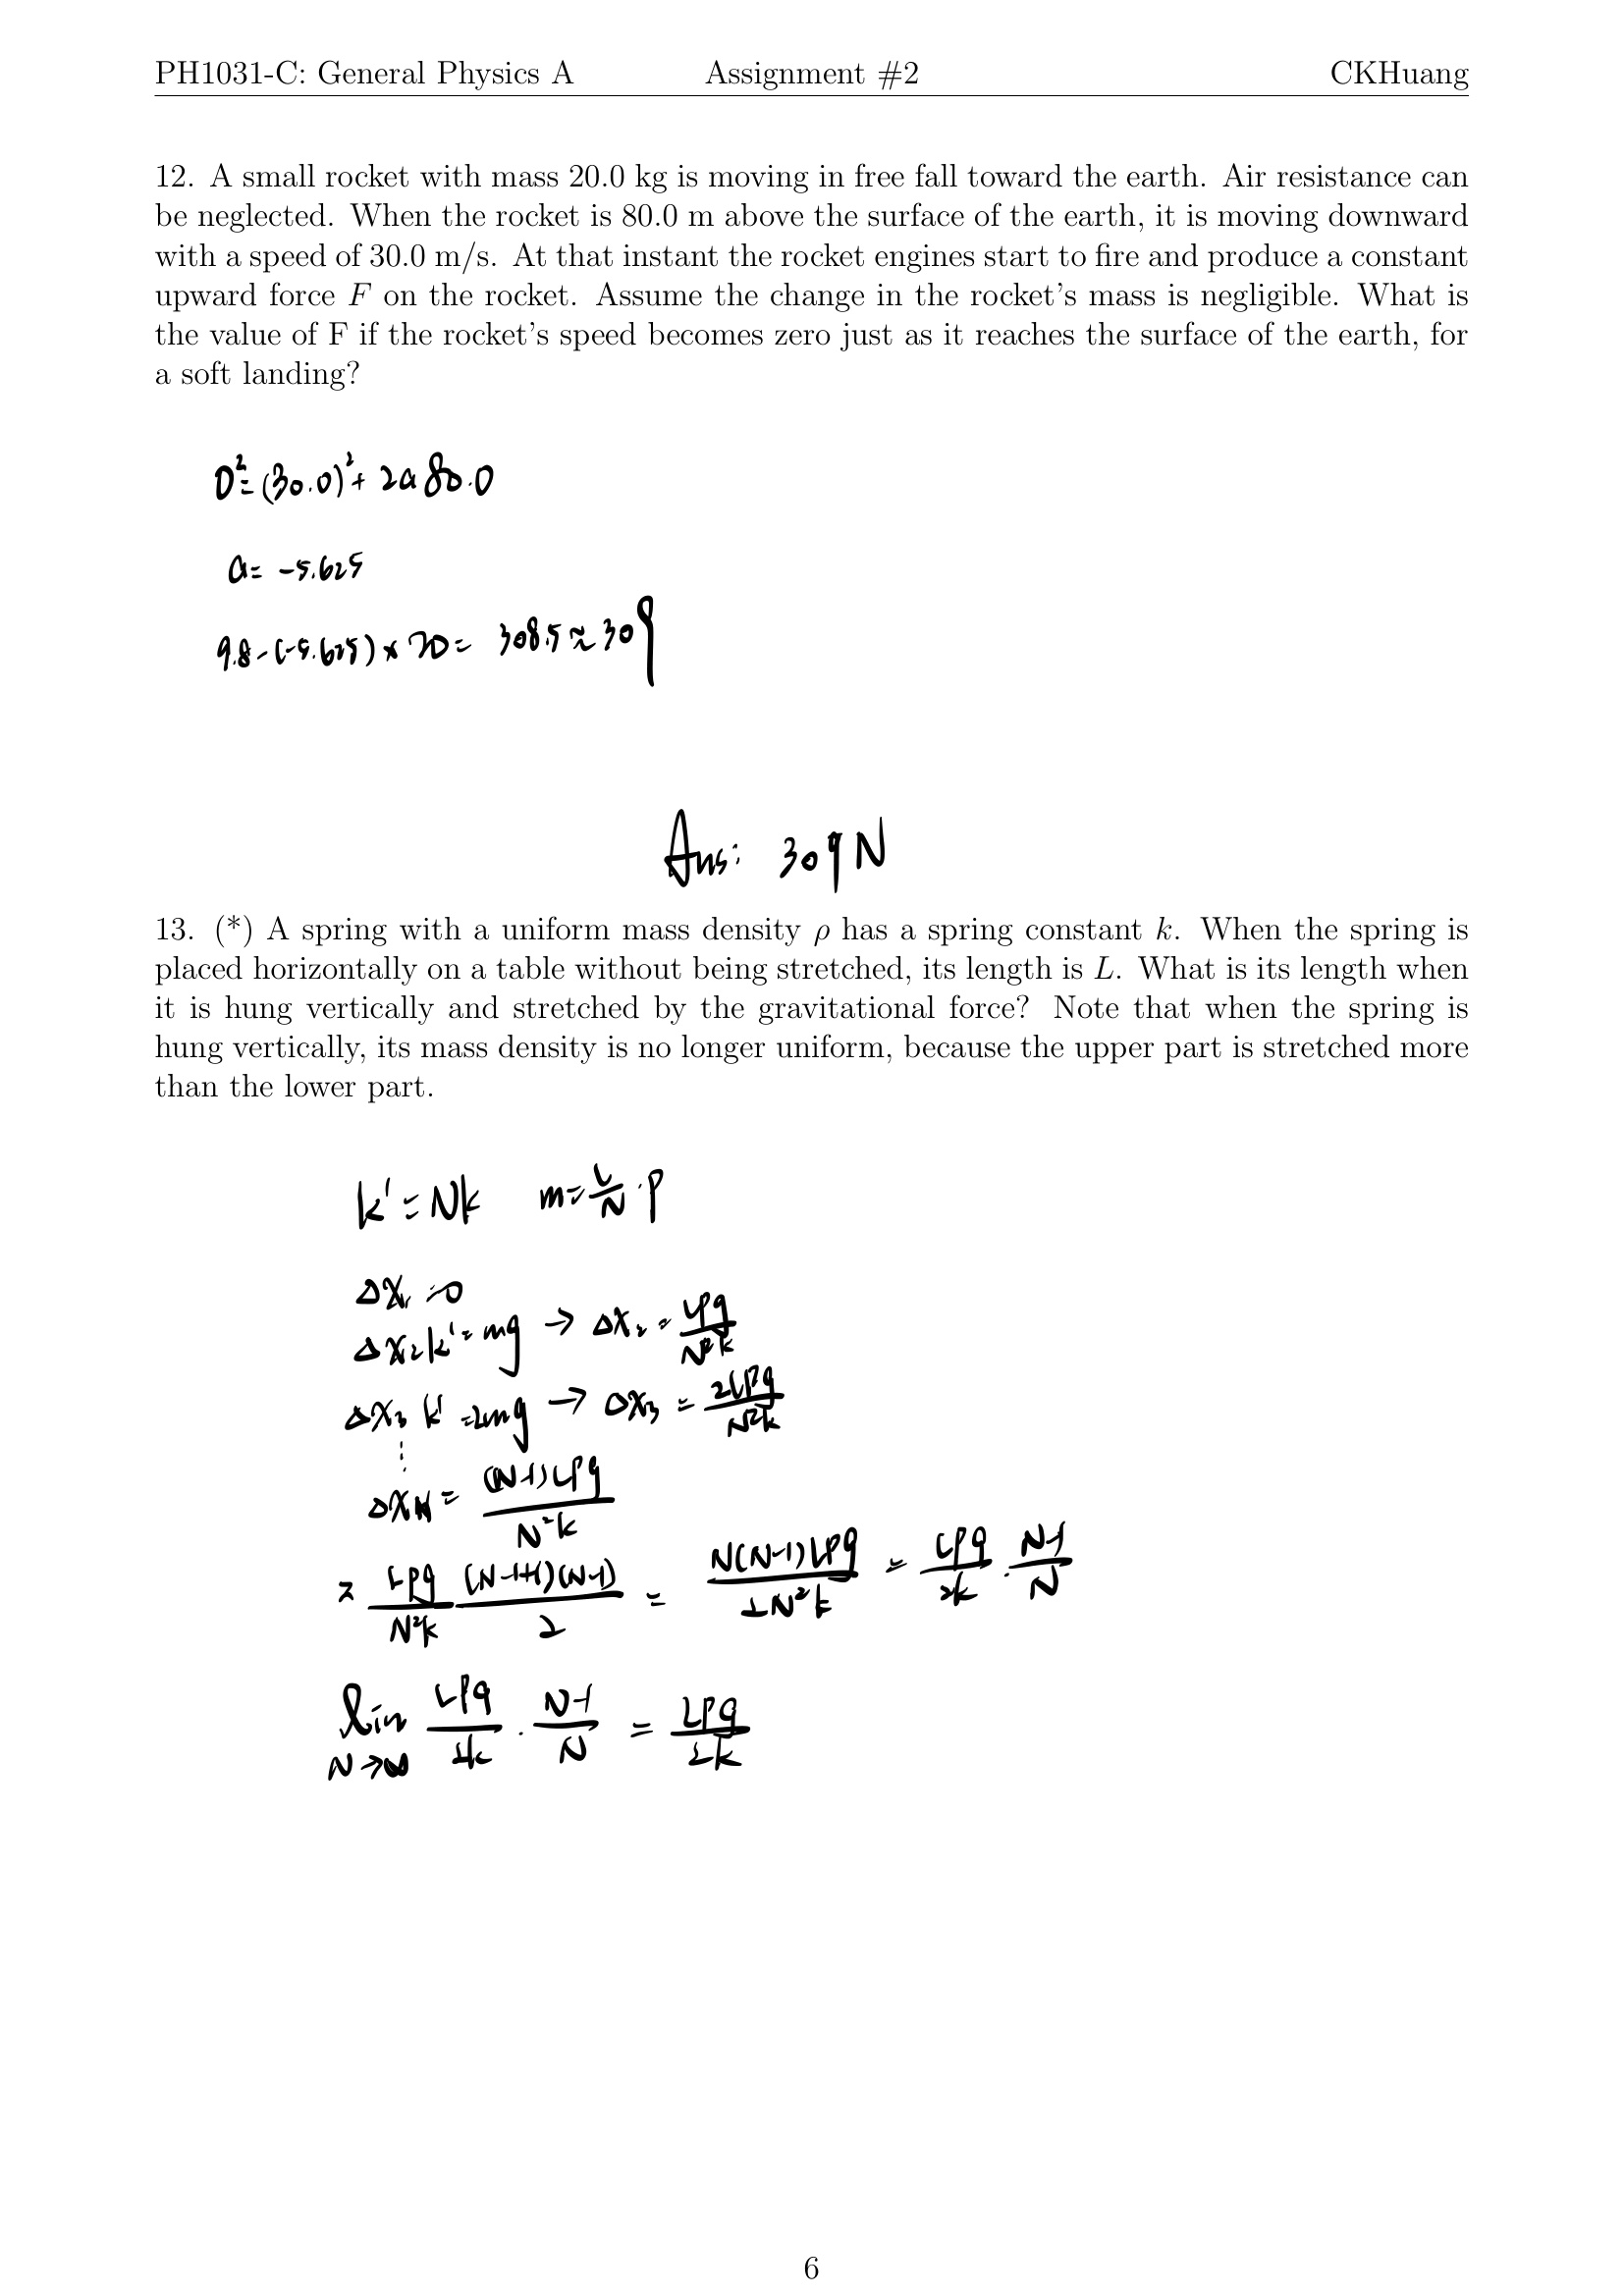 PH1031-C: General Physics A Assignment #2 CKHuang
12. A small rocket with mass 20.0 kg is moving in free fall toward the earth. Air resistance can
be neglected. When the rocket is 80.0 m above the surface of the earth, it is moving downward
with a speed of 30.0 m/s. At that instant the rocket engines start to fire and produce a constant
upward force F on the rocket. Assume the change in the rocket's mass is negligible. What is
the value of F if the rocket's speed becomes zero just as it reaches the surface of the earth, for
a soft landing?
0²=(30.0)²+ 2a80.0
a= -5.625
9.8-(-5.625)×20= 308.5≈309
Ans: 309N
13. (*) A spring with a uniform mass density ρ has a spring constant k. When the spring is
placed horizontally on a table without being stretched, its length is L. What is its length when
it is hung vertically and stretched by the gravitational force? Note that when the spring is
hung vertically, its mass density is no longer uniform, because the upper part is stretched more
than the lower part.
k'=Nk m=L/N·ρ
Δx₁=0
Δx₂k'=mg → Δx₂=Lρg/N²k
Δx₃k'=2mg → Δx₃=2Lρg/N²k
⋮
Δx_N=(N-1)Lρg/N²k
Σ Lρg/N²k (N-1+1)(N-1)/2 = N(N-1)Lρg/2N²k = Lρg/2k · N-1/N
lim N→∞ Lρg/2k · N-1/N = Lρg/2k
6